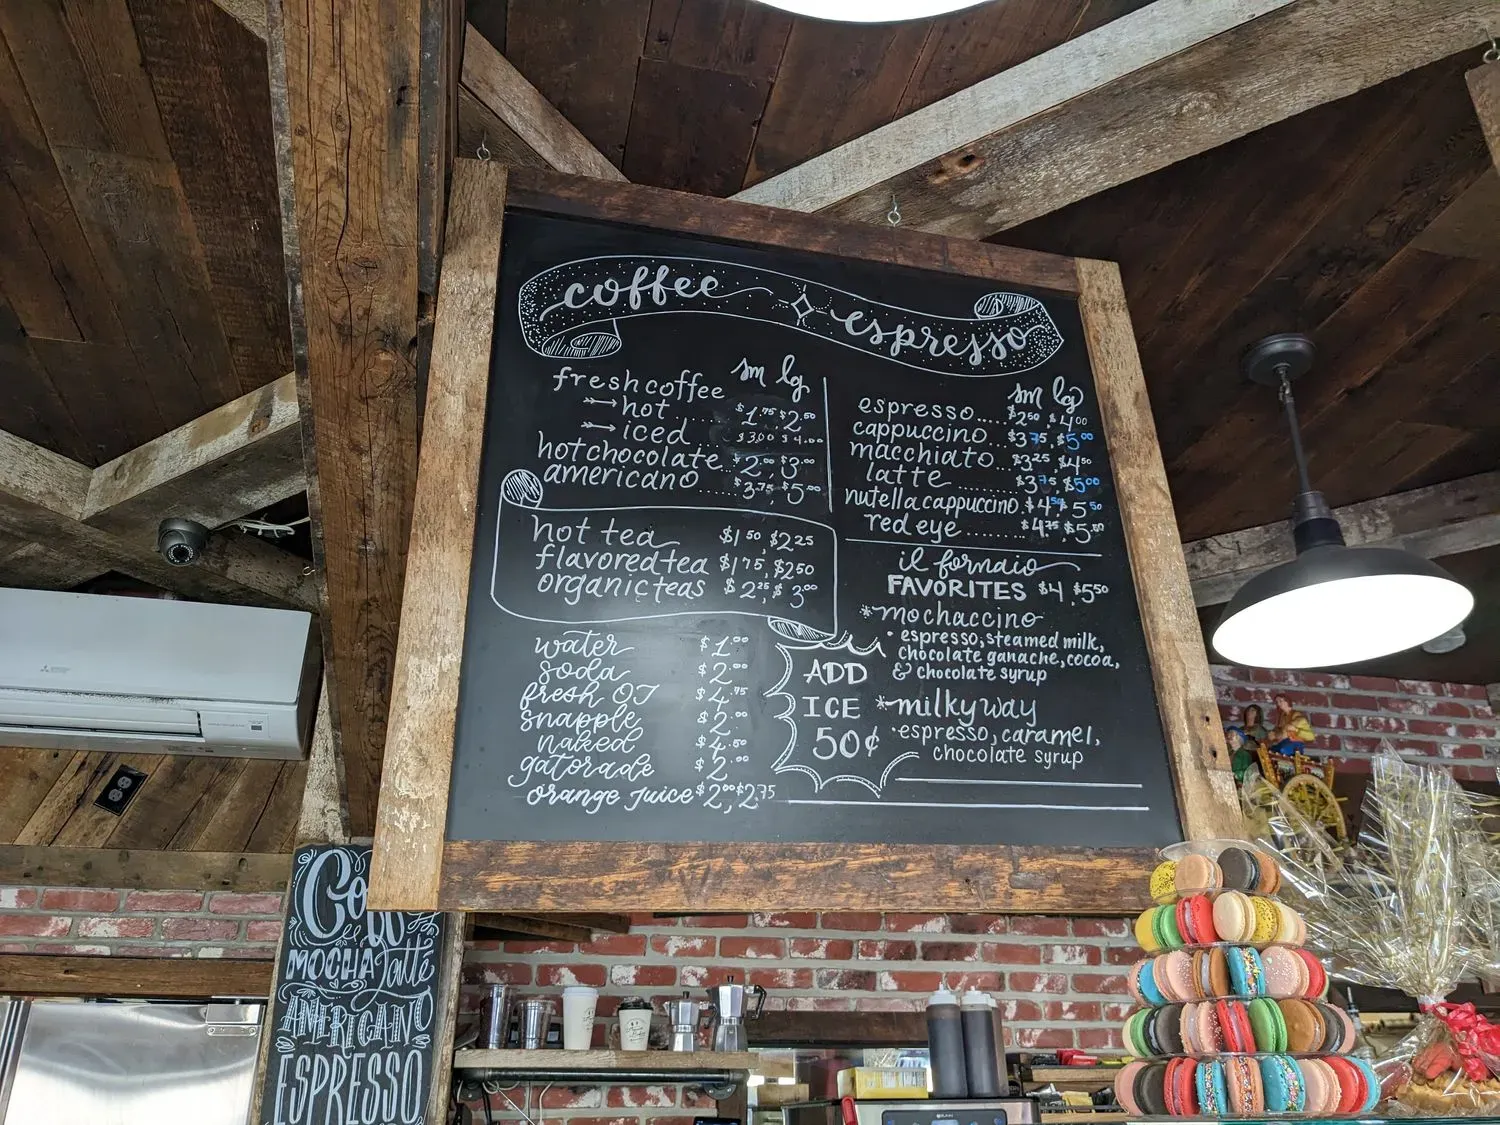 coffee espresso
sm lg
fresh coffee
hot ...... $1.75 $2.50
iced ..... $3.00 $4.00
hot chocolate.. $2.00, $3.00
americano ...... $3.75 $5.00
hot tea $1 50, $2 25
flavored tea $1 75, $2 50
organic teas $2 25, $3 00
water $1.00
soda $2.00
fresh OJ $4.75
snapple $2.00
naked $4.50
gatorade $2.00
orange juice $2 00, $2.75
ADD
ICE
50¢
sm lg
espresso..... $2 50, $4 00
cappuccino.... $3 75, $5 00
macchiato.... $3.25, $4 50
latte .......... $3 75, $5 00
nutella cappuccino. $4 50, $5 50
red eye ......... $4.75, $5.50
il fornaio
FAVORITES $4, $5 50
*mochaccino
• espresso, steamed milk,
chocolate ganache, cocoa,
& chocolate syrup
*milky way
• espresso, caramel,
chocolate syrup
MOCHA Latte
AMERICANO
ESPRESSO